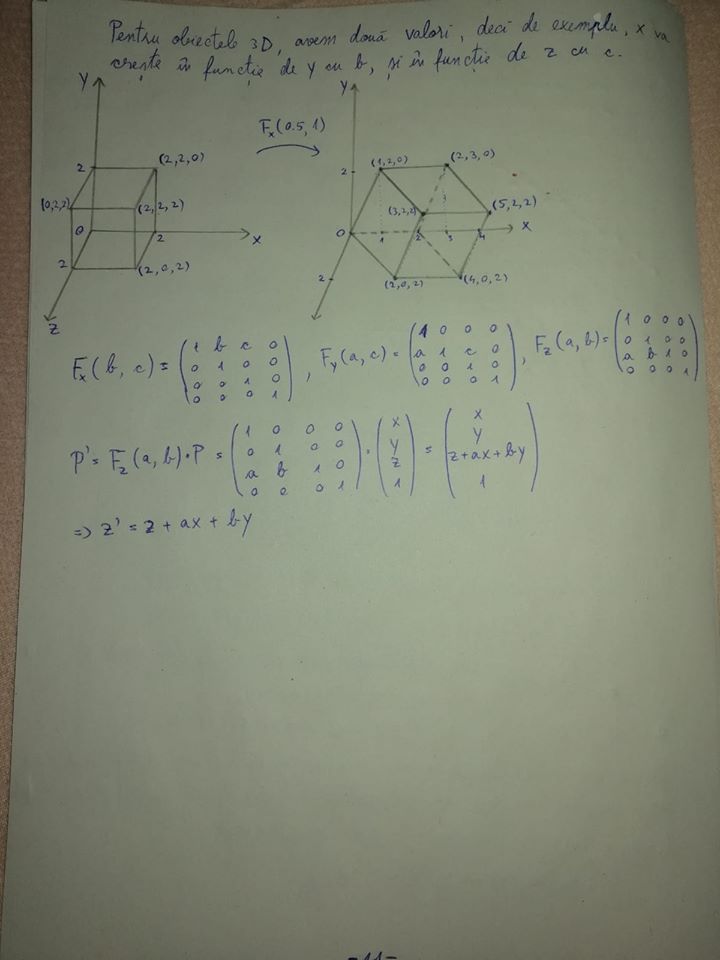 Pentru obiectele 3D, avem două valori, deci de exemplu, x va
crește în funcție de y cu b, și în funcție de z cu c.
Y
2
(2,2,0)
(0,2,2)
(2,2,2)
0
2
X
2
(2,0,2)
Z
Fx(0.5,1)
Y
2
(1,2,0)
(2,3,0)
(3,2,2)
(5,2,2)
0
1
2
3
4
X
2
(2,0,2)
(4,0,2)
Fx(b, c) = (1 b c 0
0 1 0 0
0 0 1 0
0 0 0 1)
, Fy(a, c) = (1 0 0 0
a 1 c 0
0 0 1 0
0 0 0 1)
, Fz(a, b) = (1 0 0 0
0 1 0 0
a b 1 0
0 0 0 1)
P' = Fz(a, b) · P = (1 0 0 0
0 1 0 0
a b 1 0
0 0 0 1)
· (x
y
z
1)
= (x
y
z+ax+by
1)
=> z' = z + ax + by
-11-